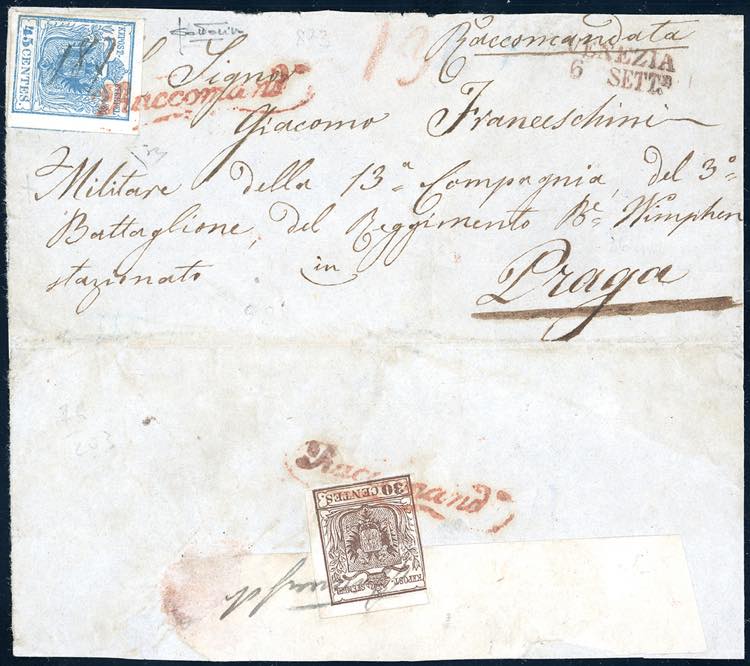 45 CENTES.
KKPOST-STEMPEL
Raccomandata
Al Signor
Raccomand.ta
13
VENEZIA
6 SETT.E
Giacomo Franceschini
Militare della 13.a Compagnia, del 3.o
Battaglione, del Reggimento B.e Wimphen
stazionato in Praga
823
203
Raccomand.ta
30 CENTES.
KKPOST-STEMPEL